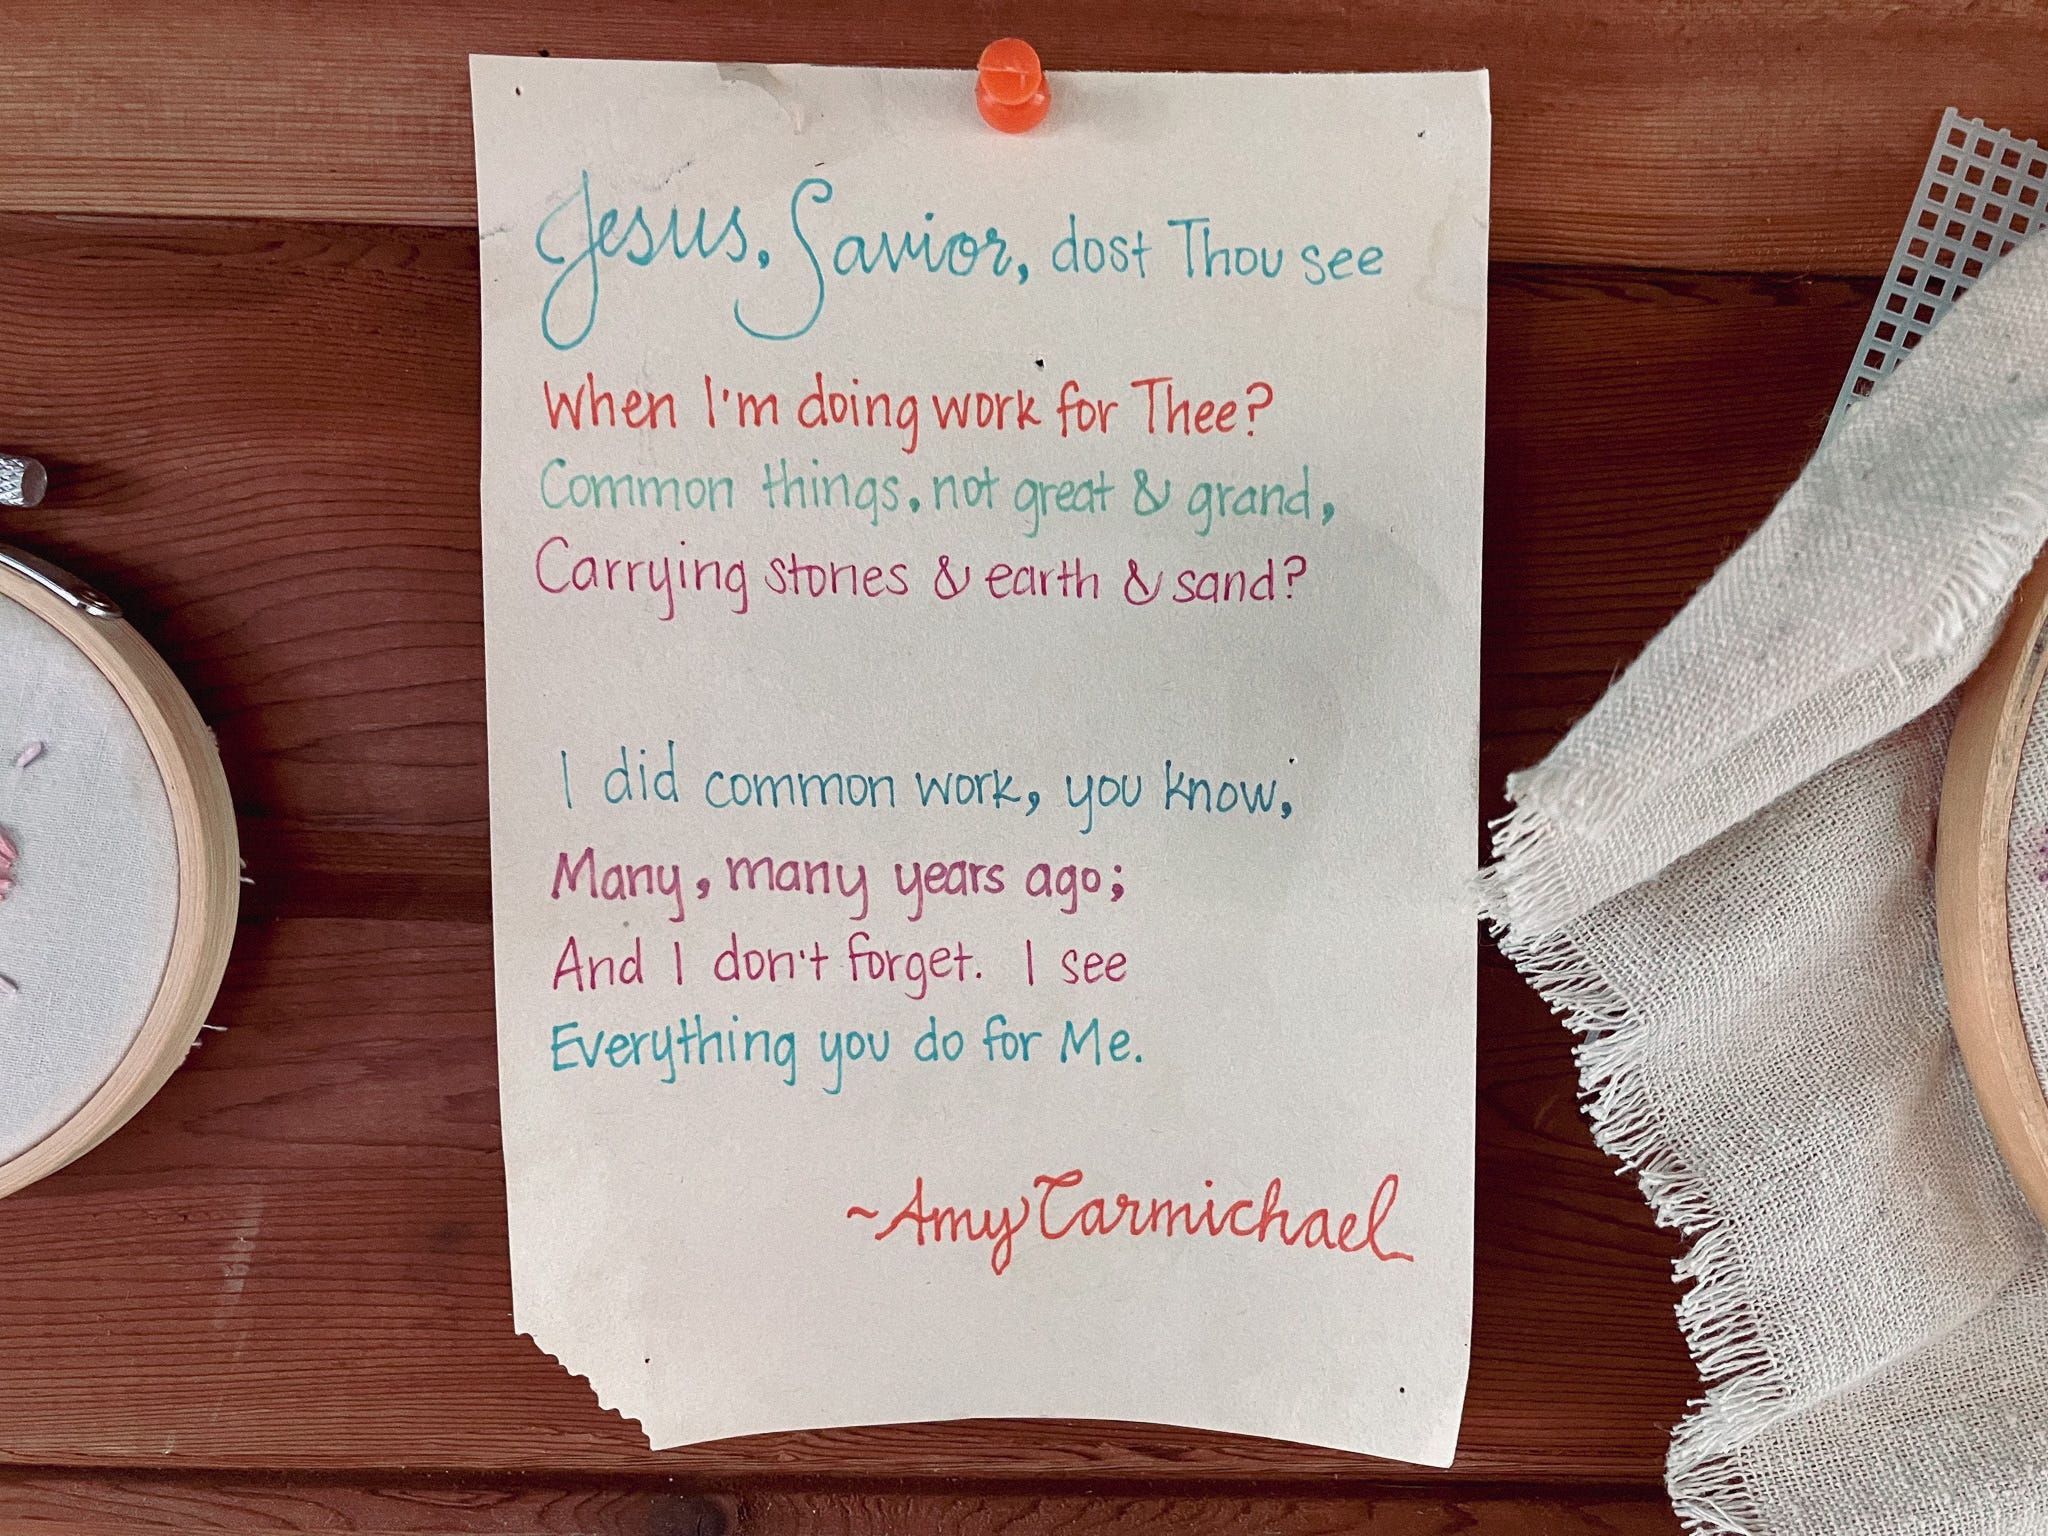 Jesus, Savior, dost Thou see
When I'm doing work for Thee?
Common things, not great & grand,
Carrying stones & earth & sand?
I did common work, you know,
Many, many years ago;
And I don't forget. I see
Everything you do for Me.
~Amy Carmichael